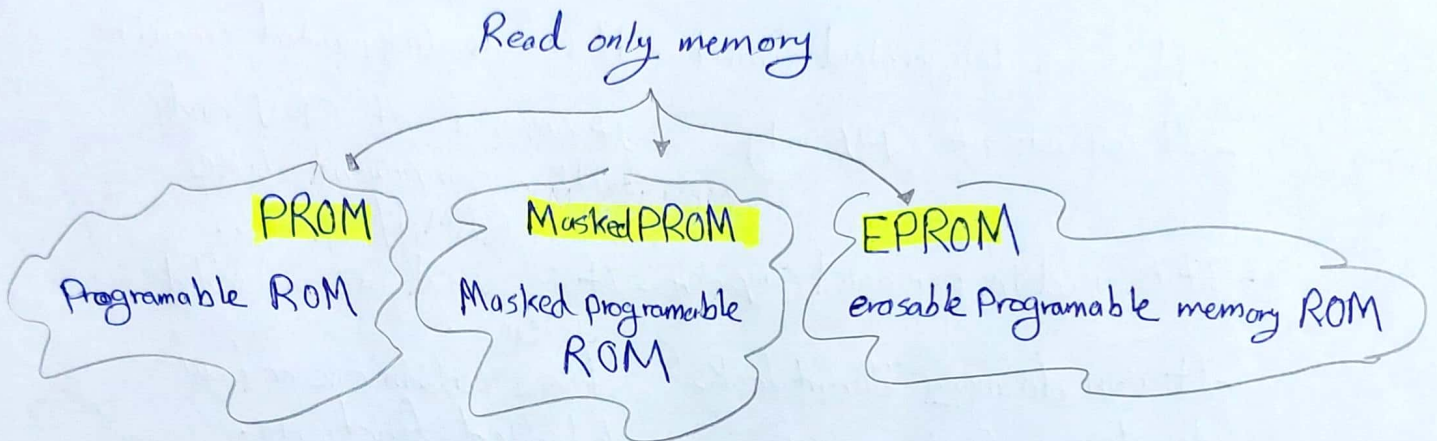 Read only memory
PROM
Programable ROM
Masked PROM
Masked programable
ROM
EPROM
erasable Programable memory ROM